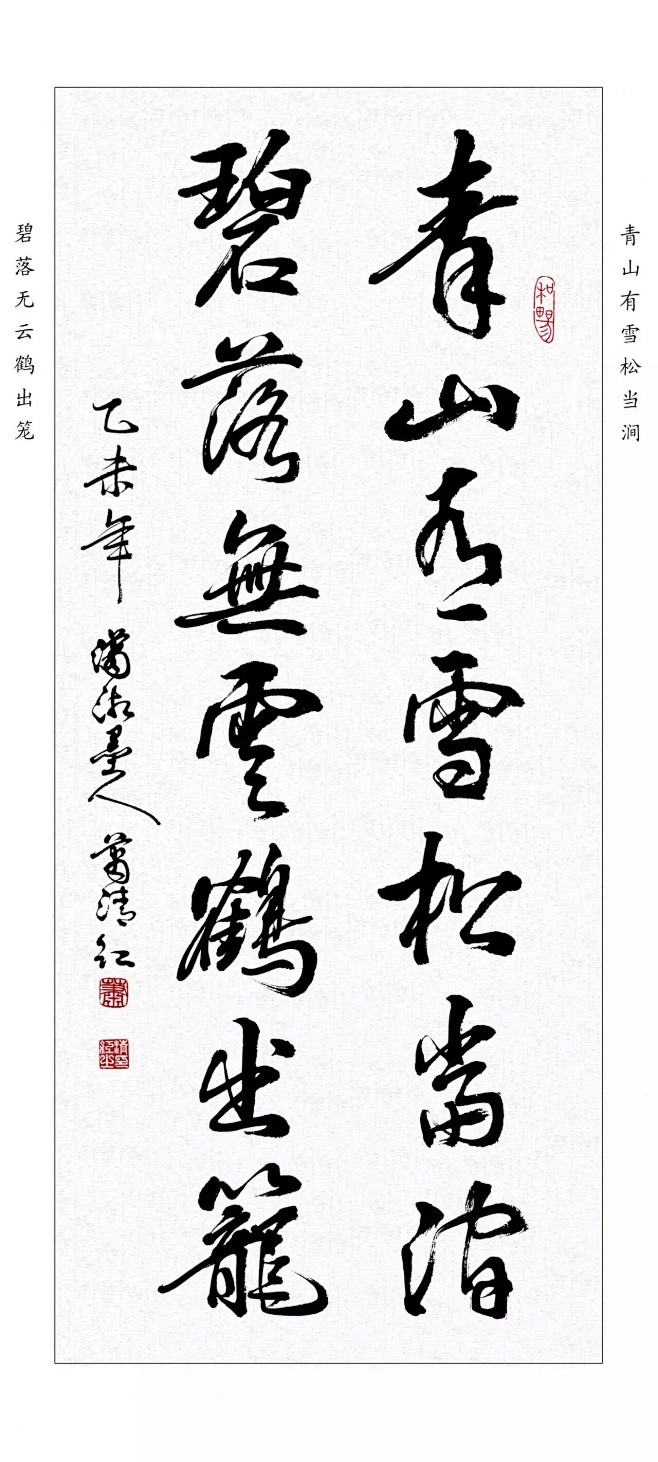 青山有雪松当涧
和畅
青山有雪松當澗
碧落無雲鶴出籠
乙未年 潇湘墨人 萧清红
碧落无云鹤出笼